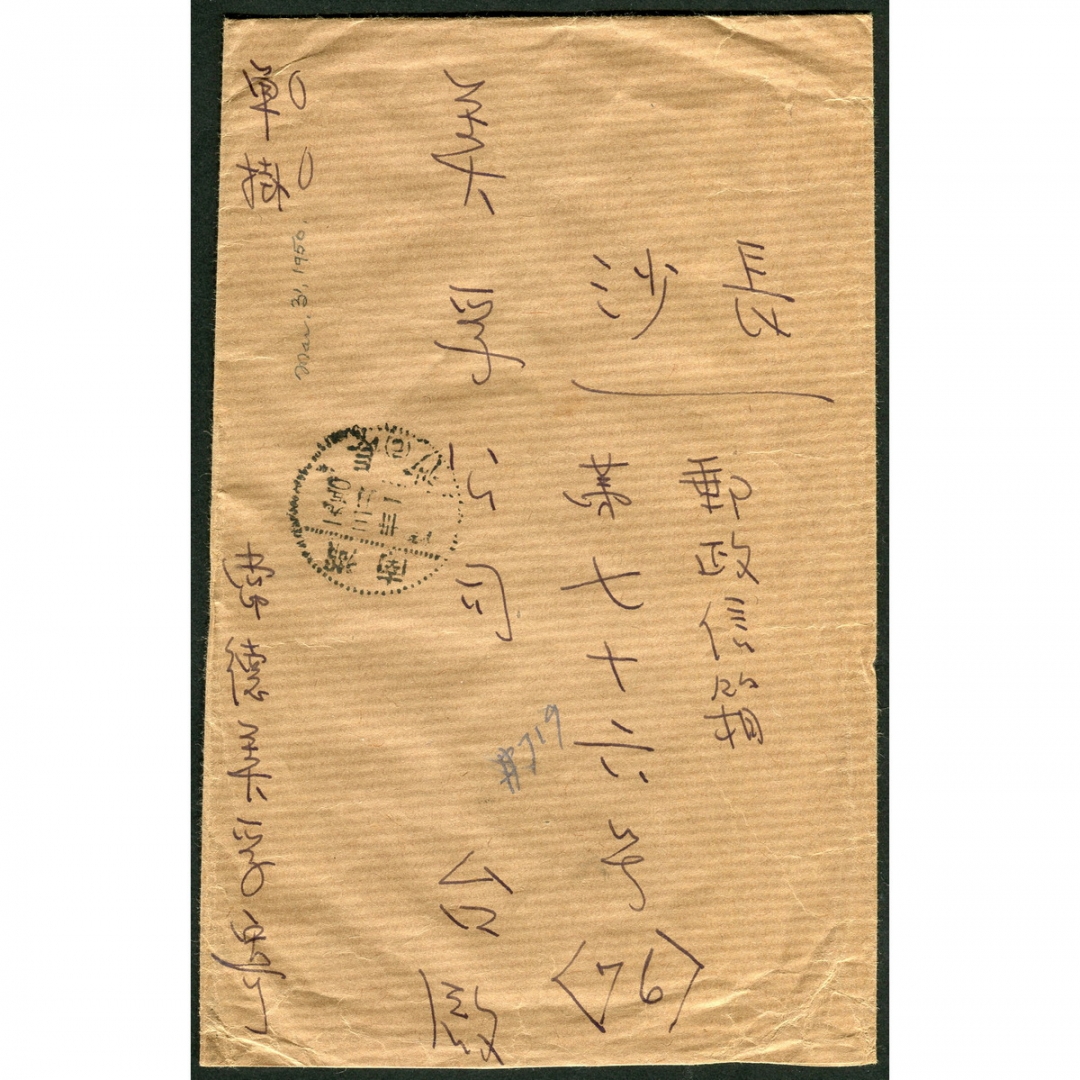 長沙
郵政信箱
第七十六号
76
美孚公司 台啟
單掛
常德美孚
Mar. 31, 1950.
#719